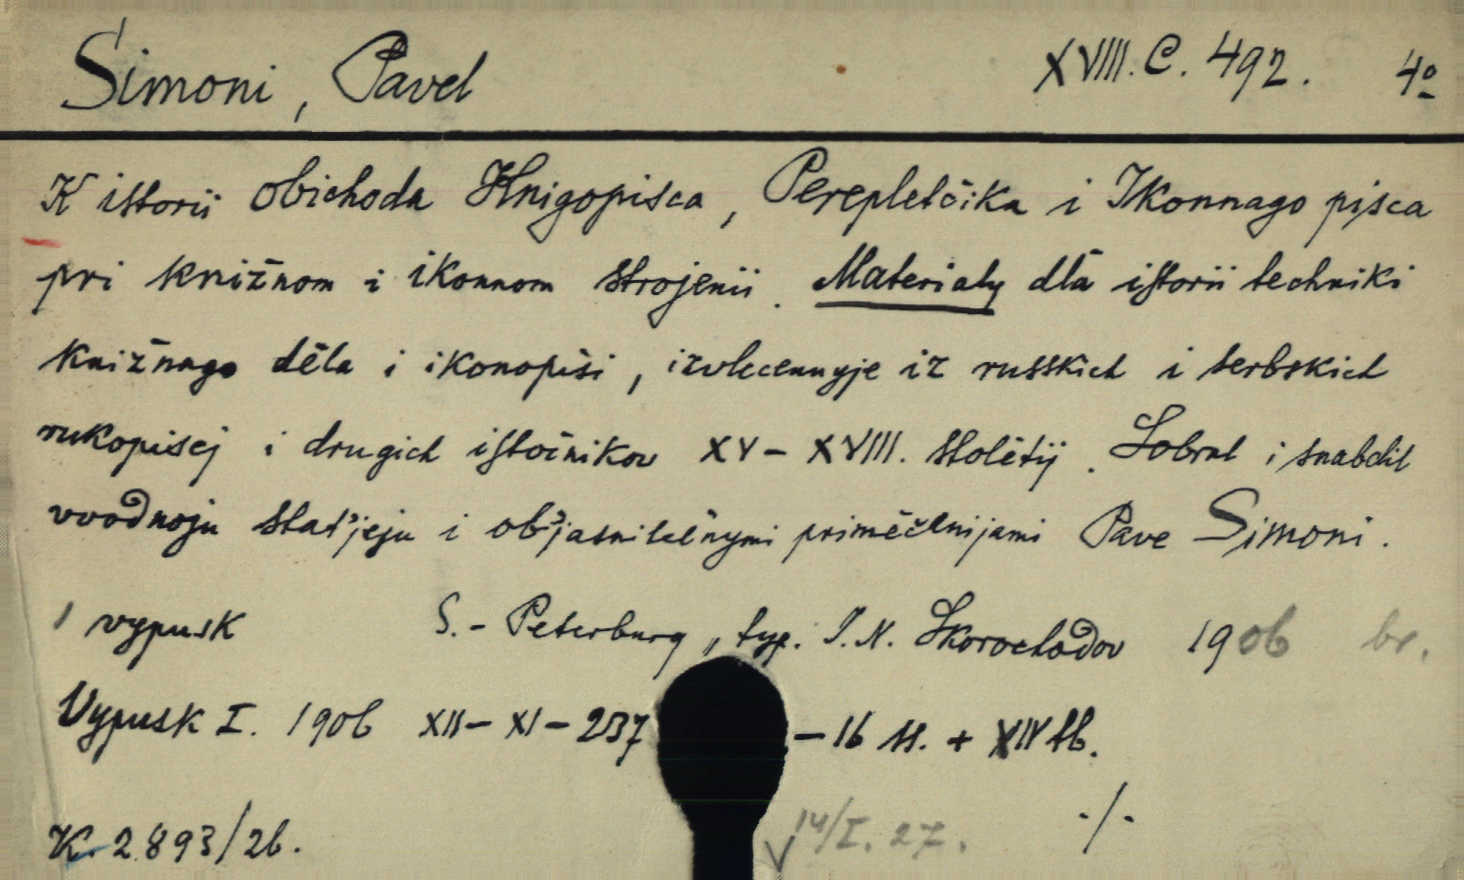 Simoni, Pavel XVIII. C. 492. 4º
K istorii obichoda Knigopisca, Perepletčika i Ikonnago pisca
pri knižnom i ikonnom strojenii. Materialy dlâ istorii techniki
knižnago děla i ikonopisi, izvlecennyje iz russkich i serbskich
rukopisej i drugich istočnikov XV - XVIII. stolětij. Sobral i snabdil
vvodnoju stať'jeju i ob'jasnitel'nymi priměčenijami Pave Simoni.
1 vypusk S.- Peterburg, typ. I. N. Skorochodov 1906 br.
Vypusk I. 1906 XII - XI - 237 - 16 ss. + XIV tb.
./.
K. 2893/26. V 14/I. 27.